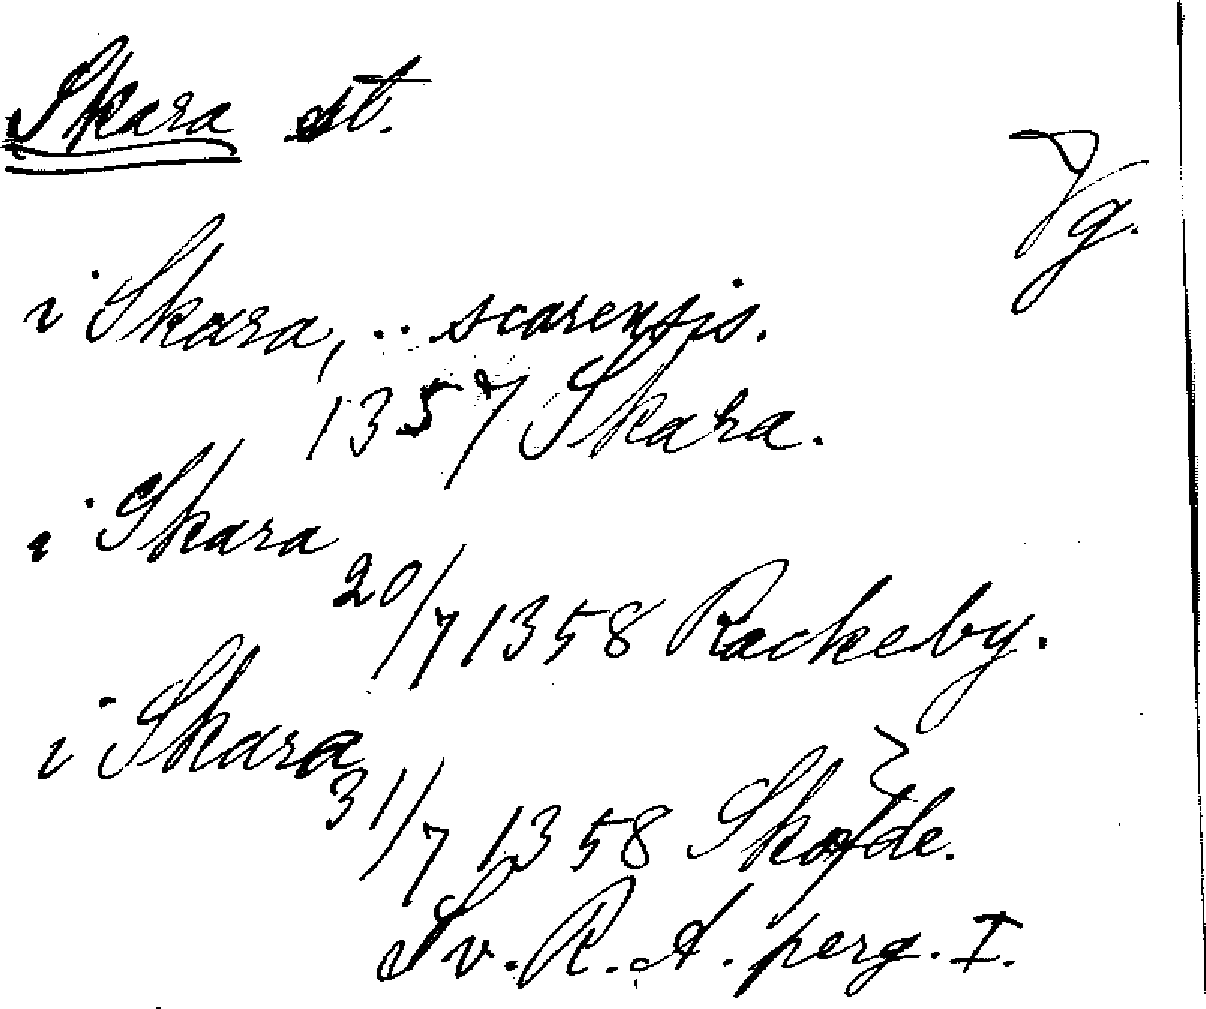 Skara st.
Vg.
i Skara, .. scarensis.
1357 Skara.
i Skara
20/7 1358 Rackeby.
i Skara
31/7 1358 Skofde.
Sv. R. A. perg. I.